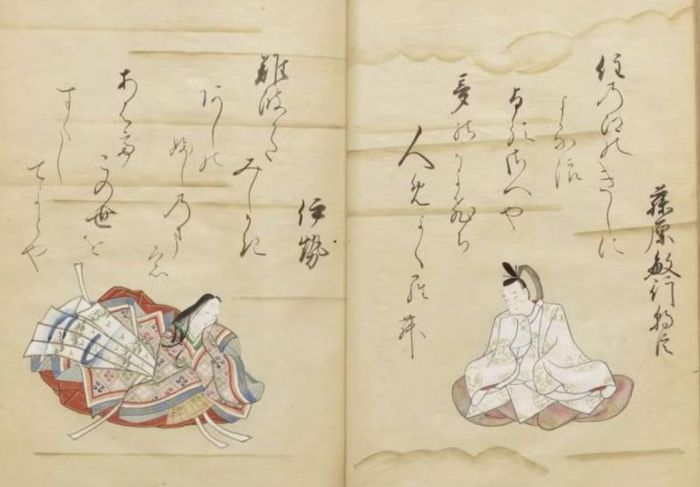 藤原敏行朝臣
住乃江のきしに
よる波
よるさへや
夢のかよひち
人めよくらむ
伊勢
難波かた
みしかき
あしの
ふしのまも
あはて
この世を
すくし
てよとや